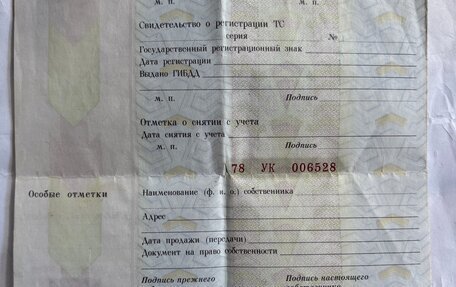 м. п. Подпись
Свидетельство о регистрации ТС
серия №
Государственный регистрационный знак
Дата регистрации
Выдано ГИБДД
м. п. Подпись
Отметка о снятии с учета
Дата снятия с учета
м. п. Подпись
78 УК 006528
Особые отметки Наименование (ф. и. о.) собственника
Адрес
Дата продажи (передачи)
Документ на право собственности
Подпись прежнего Подпись настоящего
собственника